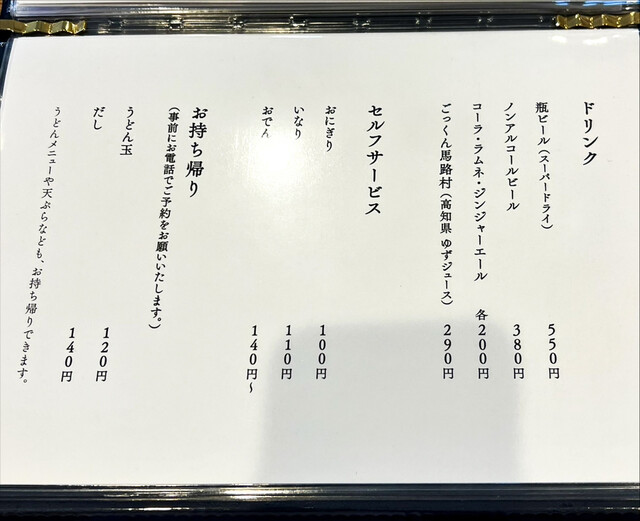 ドリンク
瓶ビール（スーパードライ） 550円
ノンアルコールビール 380円
コーラ・ラムネ・ジンジャーエール 各200円
ごっくん馬路村（高知県 ゆずジュース） 290円
セルフサービス
おにぎり 100円
いなり 110円
おでん 140円〜
お持ち帰り
（事前にお電話でご予約をお願いいたします。）
うどん玉 120円
だし 140円
うどんメニューや天ぷらなども、お持ち帰りできます。